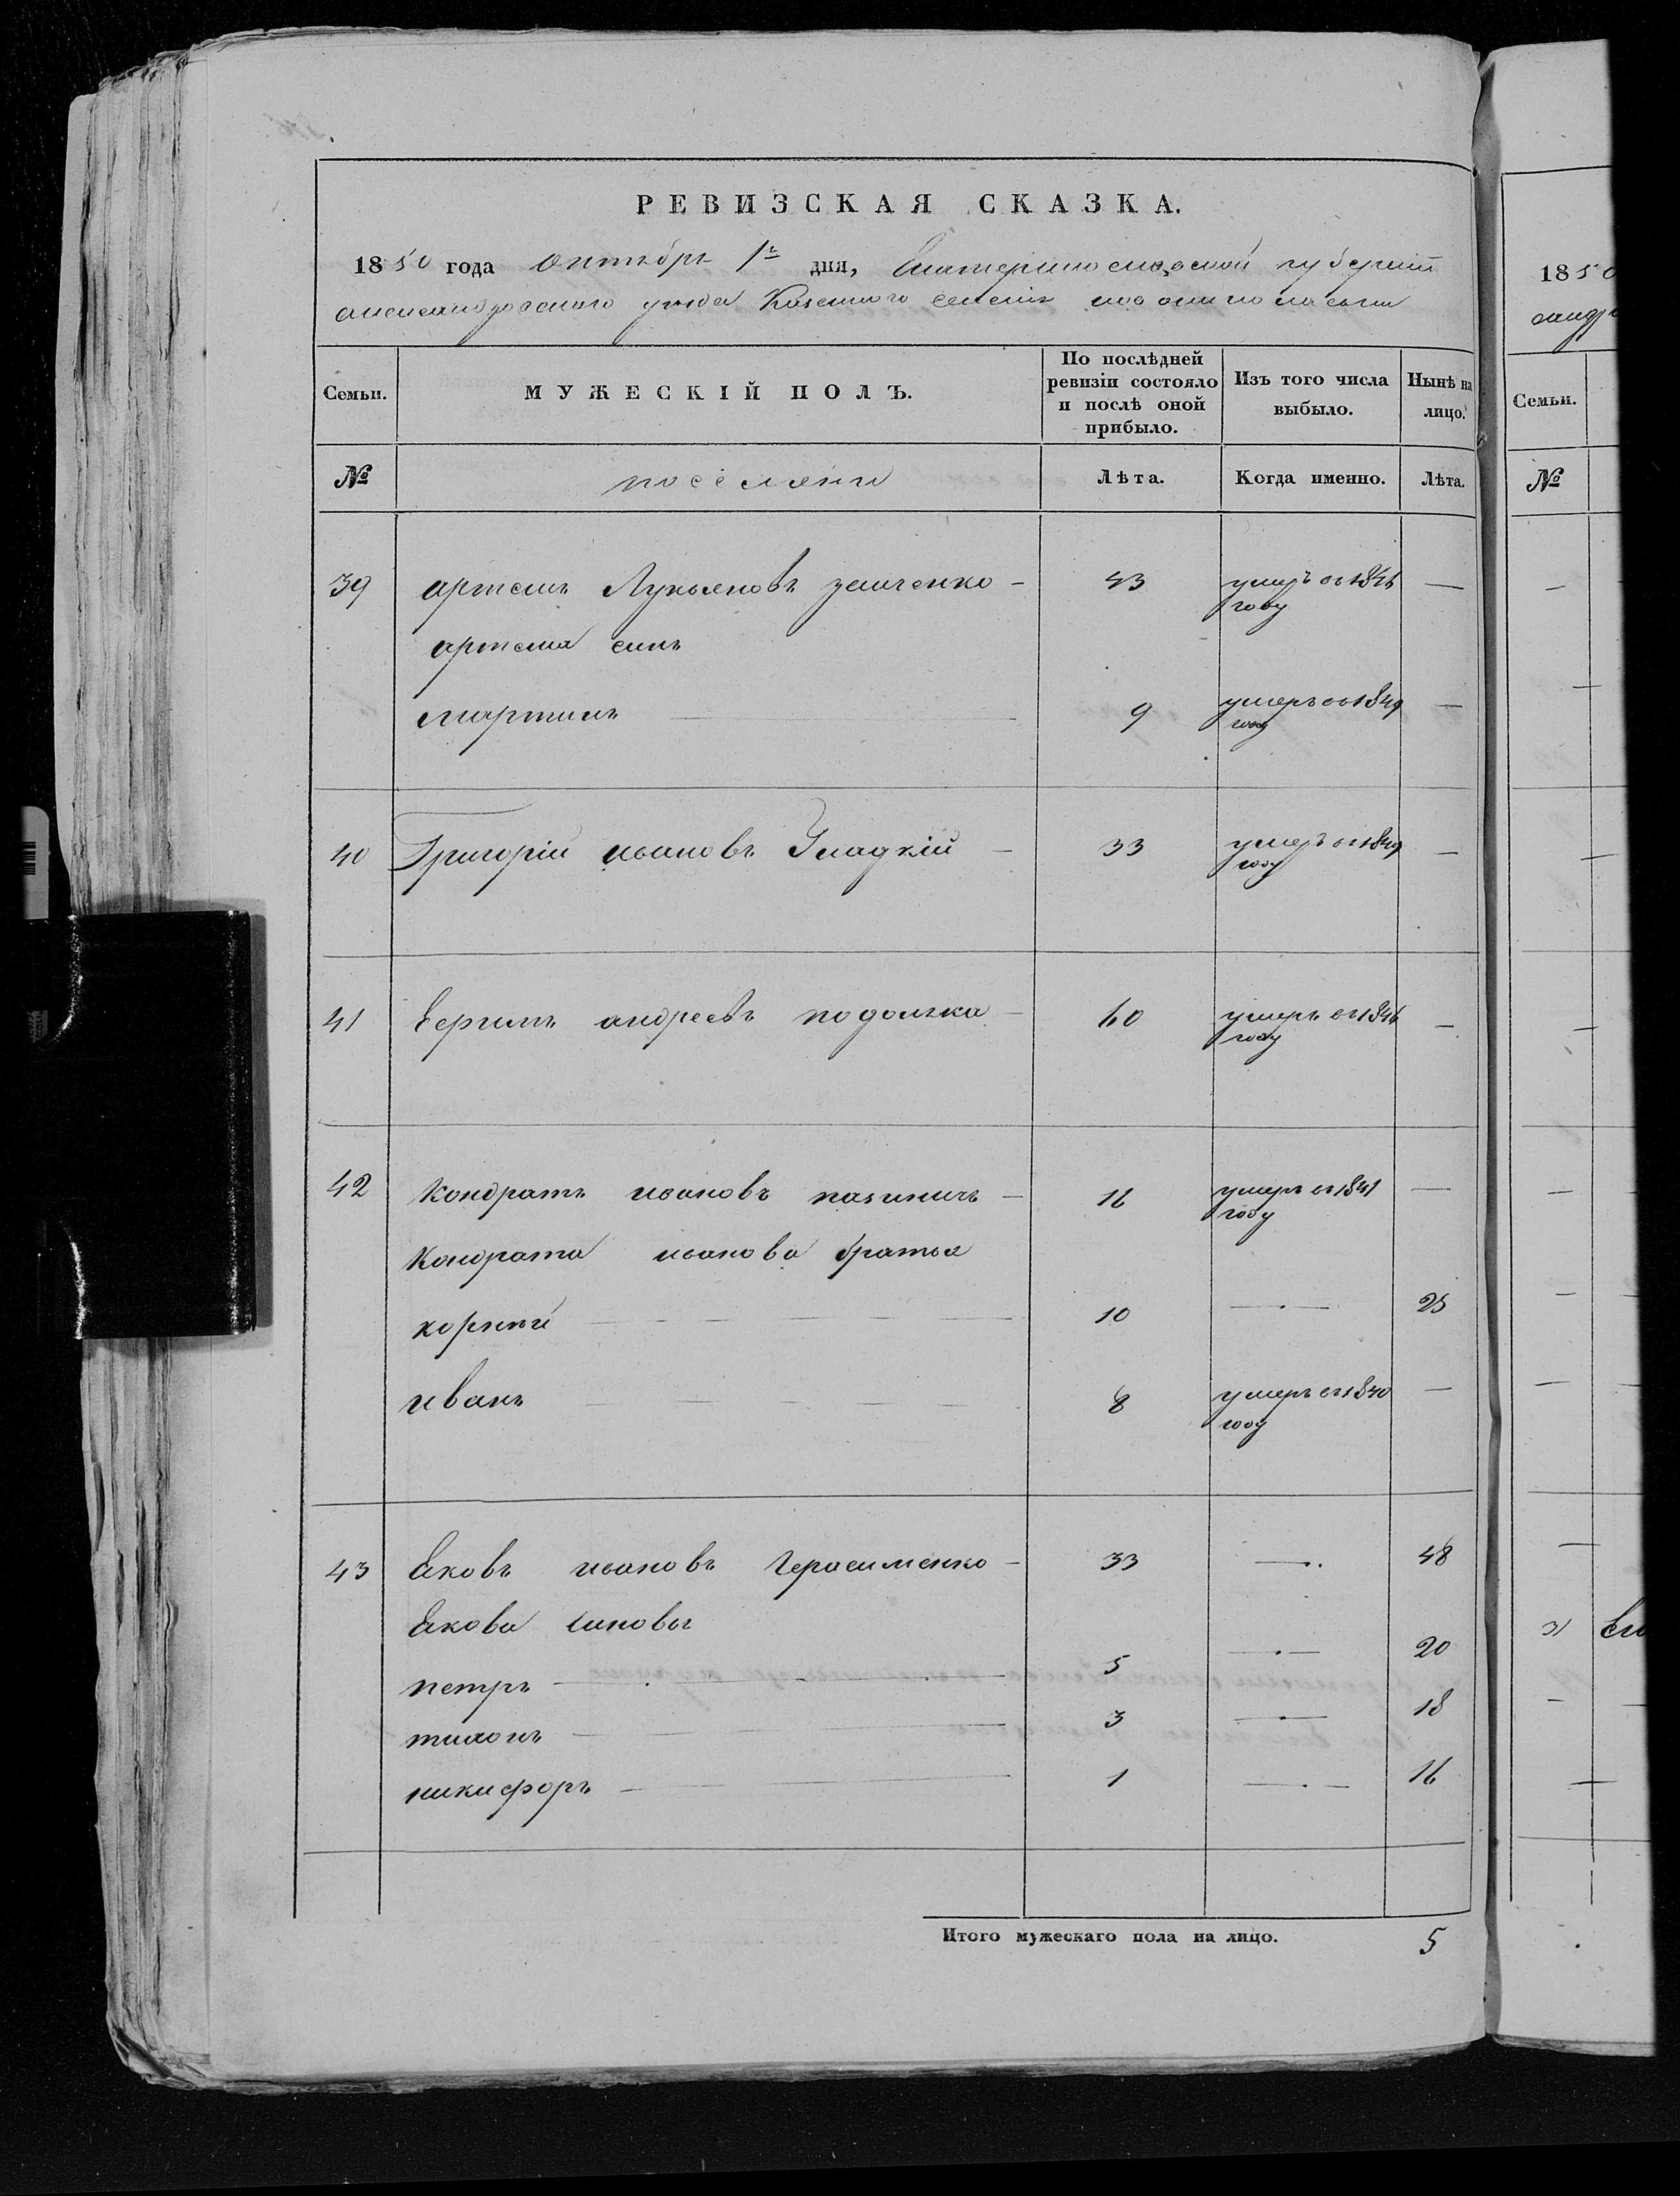 РЕВИЗСКАЯ СКАЗКА.
1850 года октября 1го дня, Екатеринославской губернии
александровского уезда Казенного селения
Семьи. МУЖЕСКІЙ ПОЛЪ. По послѣдней ревизіи состояло и послѣ оной прибыло. Изъ того числа выбыло. Нынѣ на лицо.
№ поселяни Лѣта. Когда именно. Лѣта.
39 артемъ Лукьяновъ 43 умеръ въ 1846 году —
артема синъ
мартинъ — 9 умеръ въ 1849 году —
40 Григорій ивановъ Гладкій — 33 умеръ въ 1849 году —
41 андреевъ 60 умеръ въ 1846 году —
42 Кондратъ ивановъ — 16 умеръ въ 1841 году —
Кондрата иванова братья
корней — 10 — 25
иванъ — 8 умеръ въ 1840 году —
43 Яковъ ивановъ Герасименко — 33 — 48
Якова синовья
петръ — 5 — 20
тихонъ — 3 — 18
никифоръ — 1 — 16
Итого мужескаго пола на лицо. 5
1850
Семьи.
№